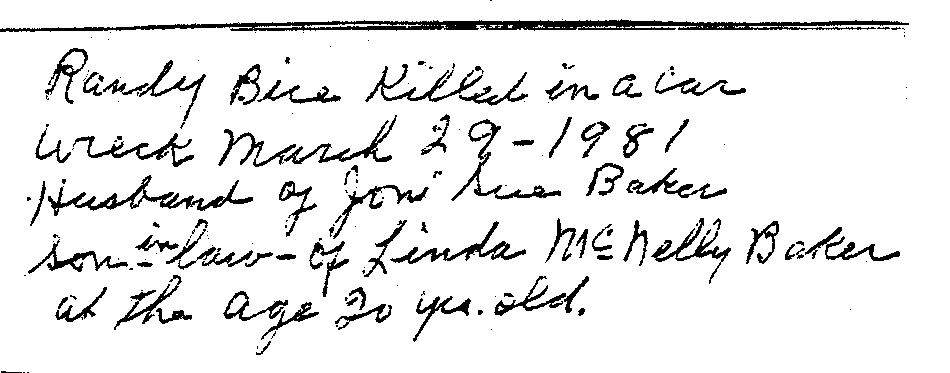 Randy Bice Killed in a car
wreck March 29-1981
Husband of Joni Sue Baker
son-in-law-of Linda McNelly Baker
at the age 20 yrs. old.